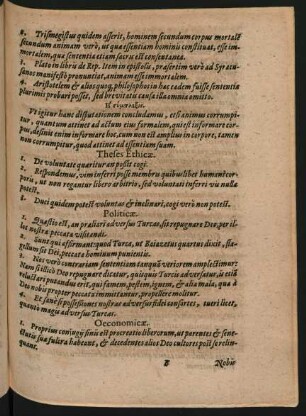 2. Trismegistus quidem asserit, hominem secundum corpus mortalē
secundum animam verò, ut quæ essentiam hominis constituat, esse im-
mortalem, quæ sententia etiam sacris est consentanea.
3. Plato in libris de Rep. Item in epistolis, præsertim verò ad Syracu-
sanos manifestò pronuntiat, animam esse immortalem.
4. Aristotelem & alios quoq; philosophos in hac eadem fuisse sententia
pluribus probari posset, sed brevitatis causa illa omnia omitto.
Ut igitur hanc disputationem concludamus, etsi animus corrumpi-
tur, quantum attinet ad actum eius formalem, qui est informare cor-
pus, desinit enim informare hoc, cum non est amplius in corpore, tamen
non corrumpitur, quod attinet ad essentiam suam.
Theses Ethicæ.
1. De voluntate quæritur an possit cogi.
2. Respondemus, vim inferri posse membris quibuslibet humani cor-
poris, ut non regantur libero arbitrio, sed voluntati inferri vis nulla
potest.
3. Duci quidem potest voluntas & inclinari, cogi verò non potest.
Politicæ.
1. Quæstio est, an præliari adversus Turcas, sit repugnare Deo, per il-
los nostra peccata visitandi.
2. Sunt qui affirmant quod Turca, ut Baiazetus quartus dixit, fla-
gellum sit Dei, peccata hominum punientis.
3. Nos verò contrariam sententiam tanquā veriorem amplectimur:
Nam si illicò Deo repugnare dicetur, qui quis Turcis adversatur, is etiā
Deo reluctari putandus erit, qui famem, pestem, ignem, & alia mala, quæ à
Deo nobis propter peccata immittantur, propellere molitur.
4. Et sanè si possessiones nostras adversus fidei confertes, tueri licet,
quanto magis adversus Turcas.
Oeconomicæ.
1. Proprius coniugij finis est procreatio liberorum, ut parentes & sene-
ctutis suæ fulcra habeant, & decedentes alios Deo cultores post se relin-
quant.
B Nobis